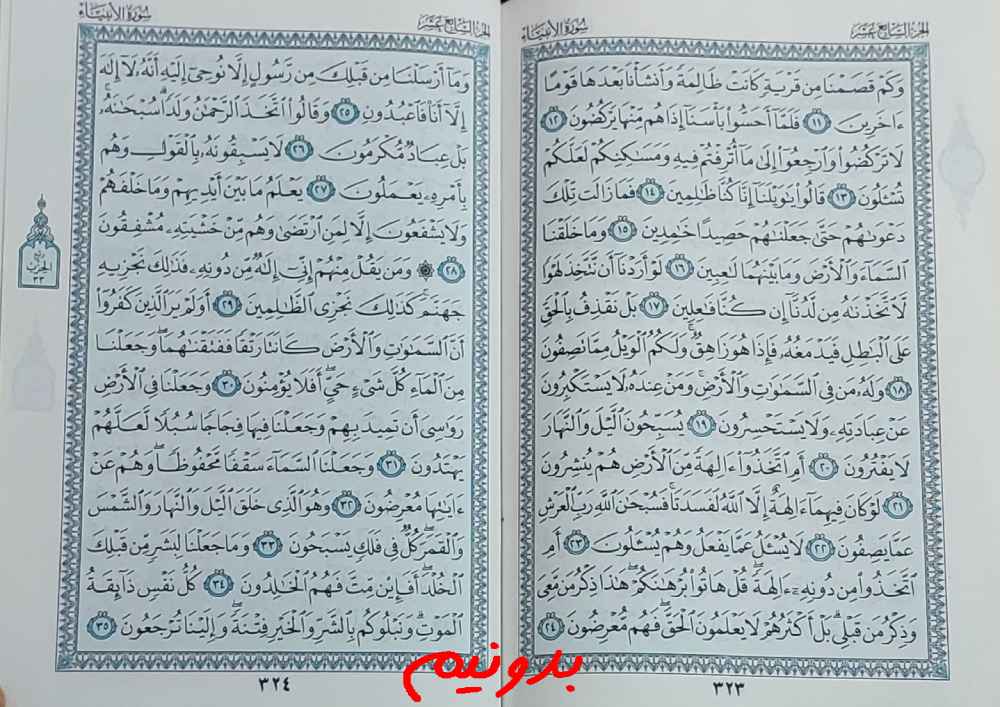 الجزء السابع عشر
سورة الأنبياء
وَكَمۡ قَصَمۡنَا مِن قَرۡيَةٖ كَانَتۡ ظَالِمَةٗ وَأَنشَأۡنَا بَعۡدَهَا قَوۡمًا
ءَاخَرِينَ ١١ فَلَمَّآ أَحَسُّواْ بَأۡسَنَآ إِذَا هُم مِّنۡهَا يَرۡكُضُونَ ١٢
لَا تَرۡكُضُواْ وَٱرۡجِعُوٓاْ إِلَىٰ مَآ أُتۡرِفۡتُمۡ فِيهِ وَمَسَٰكِنِكُمۡ لَعَلَّكُمۡ
تُسۡـَٔلُونَ ١٣ قَالُواْ يَٰوَيۡلَنَآ إِنَّا كُنَّا ظَٰلِمِينَ ١٤ فَمَا زَالَت تِّلۡكَ
دَعۡوَىٰهُمۡ حَتَّىٰ جَعَلۡنَٰهُمۡ حَصِيدًا خَٰمِدِينَ ١٥ وَمَا خَلَقۡنَا
ٱلسَّمَآءَ وَٱلۡأَرۡضَ وَمَا بَيۡنَهُمَا لَٰعِبِينَ ١٦ لَوۡ أَرَدۡنَآ أَن نَّتَّخِذَ لَهۡوٗا
لَّٱتَّخَذۡنَٰهُ مِن لَّدُنَّآ إِن كُنَّا فَٰعِلِينَ ١٧ بَلۡ نَقۡذِفُ بِٱلۡحَقِّ
عَلَى ٱلۡبَٰطِلِ فَيَدۡمَغُهُۥ فَإِذَا هُوَ زَاهِقٞۚ وَلَكُمُ ٱلۡوَيۡلُ مِمَّا تَصِفُونَ
١٨ وَلَهُۥ مَن فِي ٱلسَّمَٰوَٰتِ وَٱلۡأَرۡضِۚ وَمَنۡ عِندَهُۥ لَا يَسۡتَكۡبِرُونَ
عَنۡ عِبَادَتِهِۦ وَلَا يَسۡتَحۡسِرُونَ ١٩ يُسَبِّحُونَ ٱلَّيۡلَ وَٱلنَّهَارَ
لَا يَفۡتُرُونَ ٢٠ أَمِ ٱتَّخَذُوٓاْ ءَالِهَةٗ مِّنَ ٱلۡأَرۡضِ هُمۡ يُنشِرُونَ
٢١ لَوۡ كَانَ فِيهِمَآ ءَالِهَةٌ إِلَّا ٱللَّهُ لَفَسَدَتَاۚ فَسُبۡحَٰنَ ٱللَّهِ رَبِّ ٱلۡعَرۡشِ
عَمَّا يَصِفُونَ ٢٢ لَا يُسۡـَٔلُ عَمَّا يَفۡعَلُ وَهُمۡ يُسۡـَٔلُونَ ٢٣ أَمِ
ٱتَّخَذُواْ مِن دُونِهِۦٓ ءَالِهَةٗۖ قُلۡ هَاتُواْ بُرۡهَٰنَكُمۡۖ هَٰذَا ذِكۡرُ مَن مَّعِيَ
وَذِكۡرُ مَن قَبۡلِيۚ بَلۡ أَكۡثَرُهُمۡ لَا يَعۡلَمُونَ ٱلۡحَقَّۖ فَهُم مُّعۡرِضُونَ ٢٤
٣٢٣
الجزء السابع عشر
سورة الأنبياء
وَمَآ أَرۡسَلۡنَا مِن قَبۡلِكَ مِن رَّسُولٍ إِلَّا نُوحِيٓ إِلَيۡهِ أَنَّهُۥ لَآ إِلَٰهَ
إِلَّآ أَنَا۠ فَٱعۡبُدُونِ ٢٥ وَقَالُواْ ٱتَّخَذَ ٱلرَّحۡمَٰنُ وَلَدٗاۗ سُبۡحَٰنَهُۥۚ
بَلۡ عِبَادٞ مُّكۡرَمُونَ ٢٦ لَا يَسۡبِقُونَهُۥ بِٱلۡقَوۡلِ وَهُم
بِأَمۡرِهِۦ يَعۡمَلُونَ ٢٧ يَعۡلَمُ مَا بَيۡنَ أَيۡدِيهِمۡ وَمَا خَلۡفَهُمۡ
وَلَا يَشۡفَعُونَ إِلَّا لِمَنِ ٱرۡتَضَىٰ وَهُم مِّنۡ خَشۡيَتِهِۦ مُشۡفِقُونَ
٢٨ ۞ وَمَن يَقُلۡ مِنۡهُمۡ إِنِّيٓ إِلَٰهٞ مِّن دُونِهِۦ فَذَٰلِكَ نَجۡزِيهِ
جَهَنَّمَۚ كَذَٰلِكَ نَجۡزِي ٱلظَّٰلِمِينَ ٢٩ أَوَلَمۡ يَرَ ٱلَّذِينَ كَفَرُوٓاْ
أَنَّ ٱلسَّمَٰوَٰتِ وَٱلۡأَرۡضَ كَانَتَا رَتۡقٗا فَفَتَقۡنَٰهُمَاۖ وَجَعَلۡنَا
مِنَ ٱلۡمَآءِ كُلَّ شَيۡءٍ حَيٍّۚ أَفَلَا يُؤۡمِنُونَ ٣٠ وَجَعَلۡنَا فِي ٱلۡأَرۡضِ
رَوَٰسِيَ أَن تَمِيدَ بِهِمۡ وَجَعَلۡنَا فِيهَا فِجَاجٗا سُبُلٗا لَّعَلَّهُمۡ
يَهۡتَدُونَ ٣١ وَجَعَلۡنَا ٱلسَّمَآءَ سَقۡفٗا مَّحۡفُوظٗاۖ وَهُمۡ عَنۡ
ءَايَٰتِهَا مُعۡرِضُونَ ٣٢ وَهُوَ ٱلَّذِي خَلَقَ ٱلَّيۡلَ وَٱلنَّهَارَ وَٱلشَّمۡسَ
وَٱلۡقَمَرَۖ كُلّٞ فِي فَلَكٖ يَسۡبَحُونَ ٣٣ وَمَا جَعَلۡنَا لِبَشَرٖ مِّن قَبۡلِكَ
ٱلۡخُلۡدَۖ أَفَإِيْن مِّتَّ فَهُمُ ٱلۡخَٰلِدُونَ ٣٤ كُلُّ نَفۡسٖ ذَآئِقَةُ
ٱلۡمَوۡتِۗ وَنَبۡلُوكُم بِٱلشَّرِّ وَٱلۡخَيۡرِ فِتۡنَةٗۖ وَإِلَيۡنَا تُرۡجَعُونَ ٣٥
ربع
الحزب
٣٣
٣٢٤
بدونیم